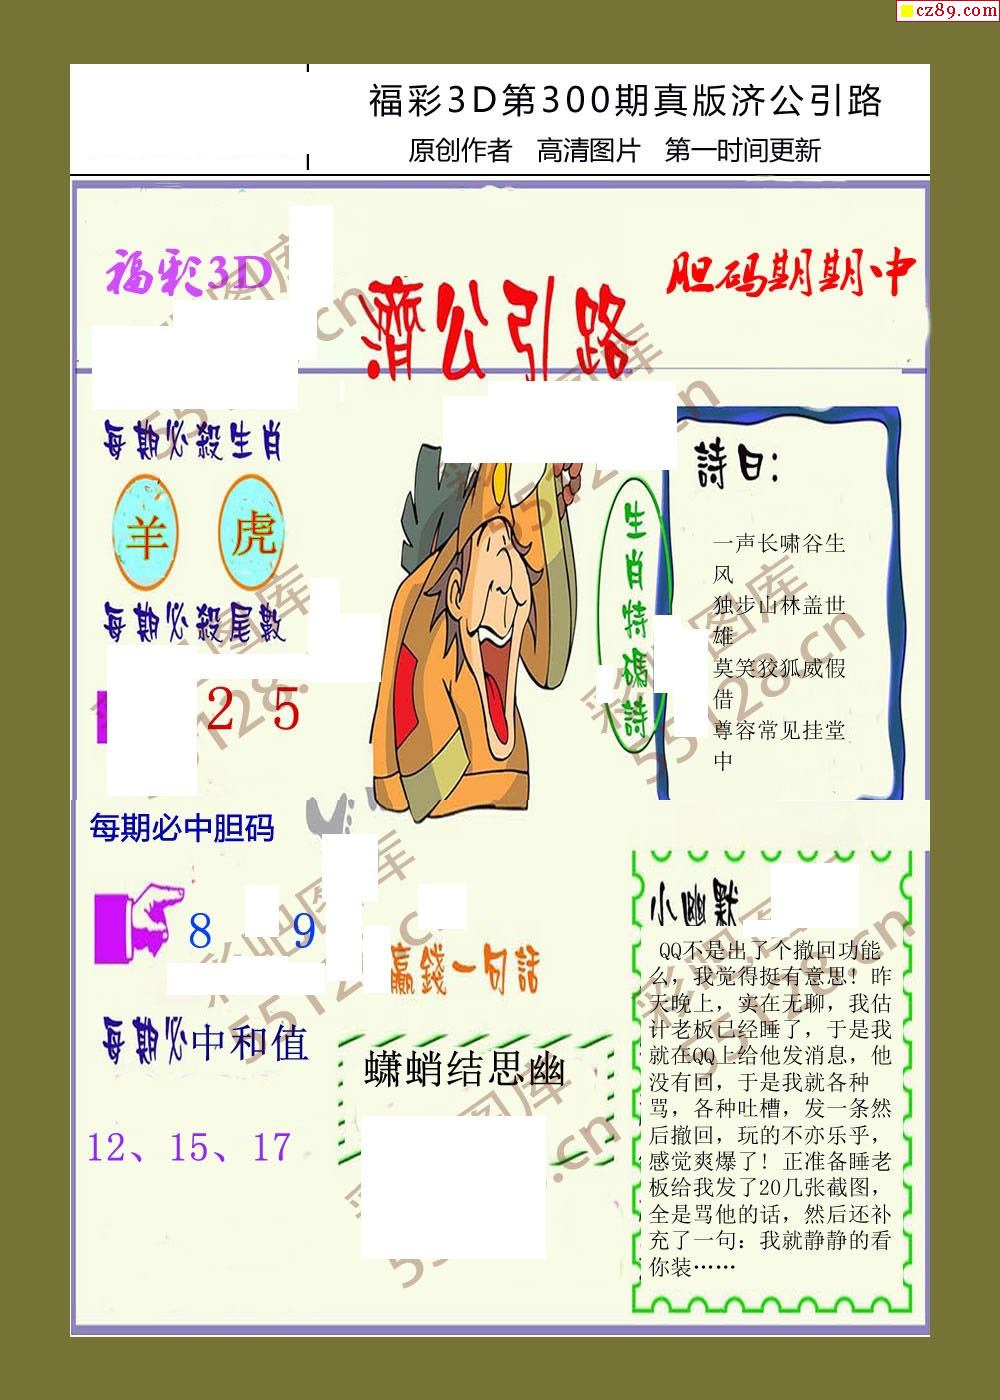 cz89.com
福彩3D第300期真版济公引路
原创作者 高清图片 第一时间更新
福彩3D
濟公引路
胆码期期中
每期必殺生肖
羊 虎
每期必殺尾數
2 5
生肖特碼詩
詩曰：
一声长啸谷生
风
独步山林盖世
雄
莫笑狡狐威假
借
尊容常见挂堂
中
每期必中胆码
8 9
每期必中和值
12、15、17
贏錢一句話
蟏蛸结思幽
小幽默
QQ不是出了个撤回功能
么，我觉得挺有意思！昨
天晚上，实在无聊，我估
计老板已经睡了，于是我
就在QQ上给他发消息，他
没有回，于是我就各种
骂，各种吐槽，发一条然
后撤回，玩的不亦乐乎，
感觉爽爆了！正准备睡老
板给我发了20几张截图，
全是骂他的话，然后还补
充了一句：我就静静的看
你装……
彩吧图库
55128.cn